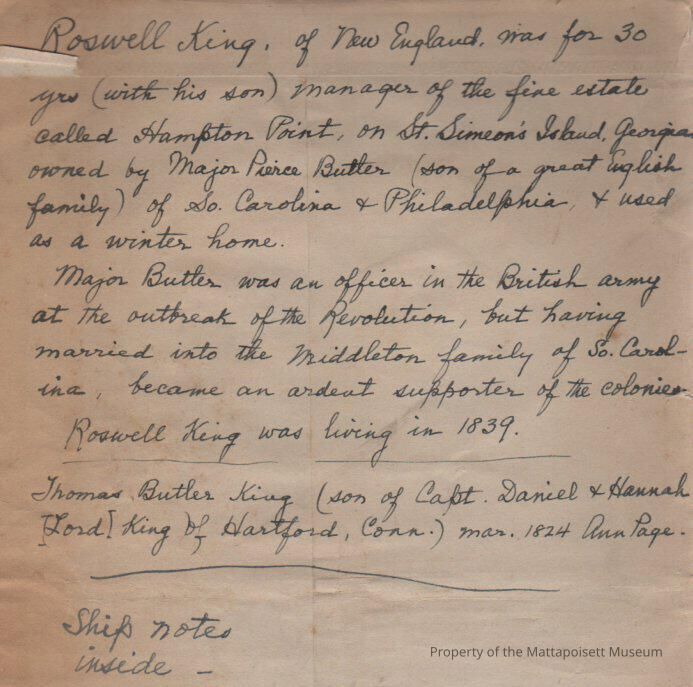 Roswell King, of New England, was for 30
yrs (with his son) manager of the fine estate
called Hampton Point, on St. Simeon's Island, Georgia
owned by Major Pierce Butler (son of a great English
family) of So. Carolina & Philadelphia, & used
as a winter home.
Major Butler was an officer in the British army
at the outbreak of the Revolution, but having
married into the Middleton family of So. Carol-
ina, became an ardent supporter of the colonies
Roswell King was living in 1839.
Thomas Butler King (son of Capt. Daniel & Hannah
[Lord] King of Hartford, Conn.) mar. 1824 Ann Page.
Ship notes
inside -
Property of the Mattapoisett Museum